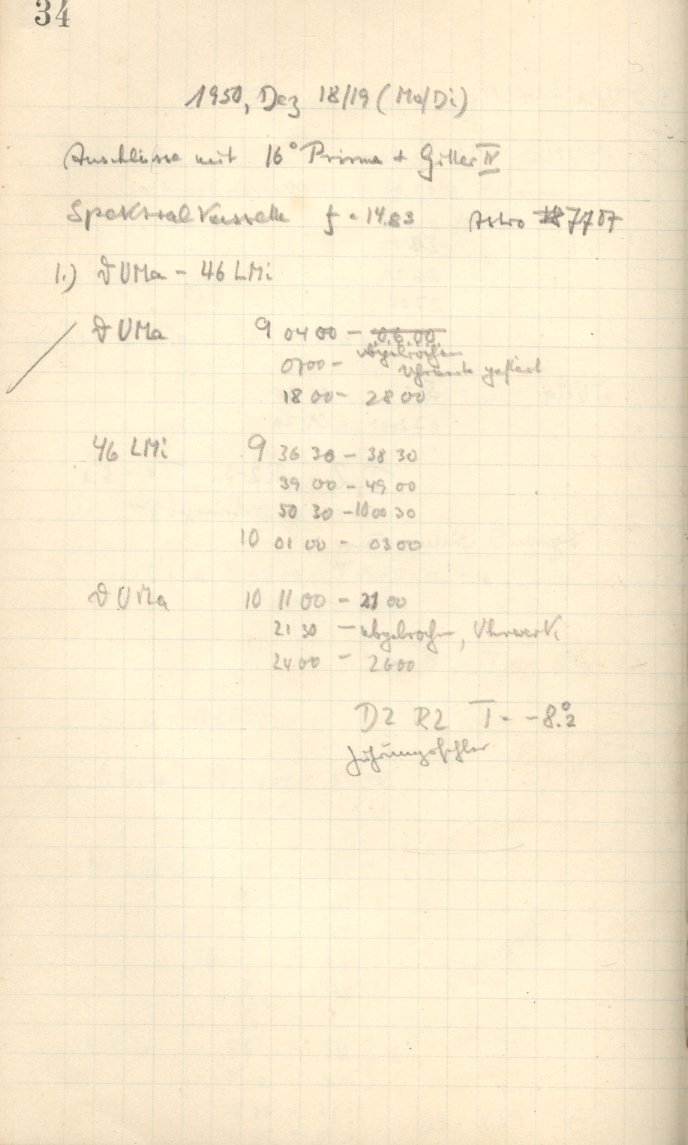 34
1950, Dez 18/19 (Mo/Di)
Anschlüsse mit 16° Prisma + Gitter IV
Spektralkassette f = 14.83 Astro 7707
1.) ϑ UMa - 46 LMi
ϑ UMa 9 04 00 - 06 00
abgebrochen
0700 -
18 00 - 28 00
46 LMi 9 36 30 - 38 30
39 00 - 49 00
50 30 - 10 00 30
10 01 00 - 03 00
ϑ UMa 10 11 00 - 21 00
21 30 - abgebrochen, Uhrwerk
24 00 - 26 00
D2 R2 T = -8.°2
Führungsfehler